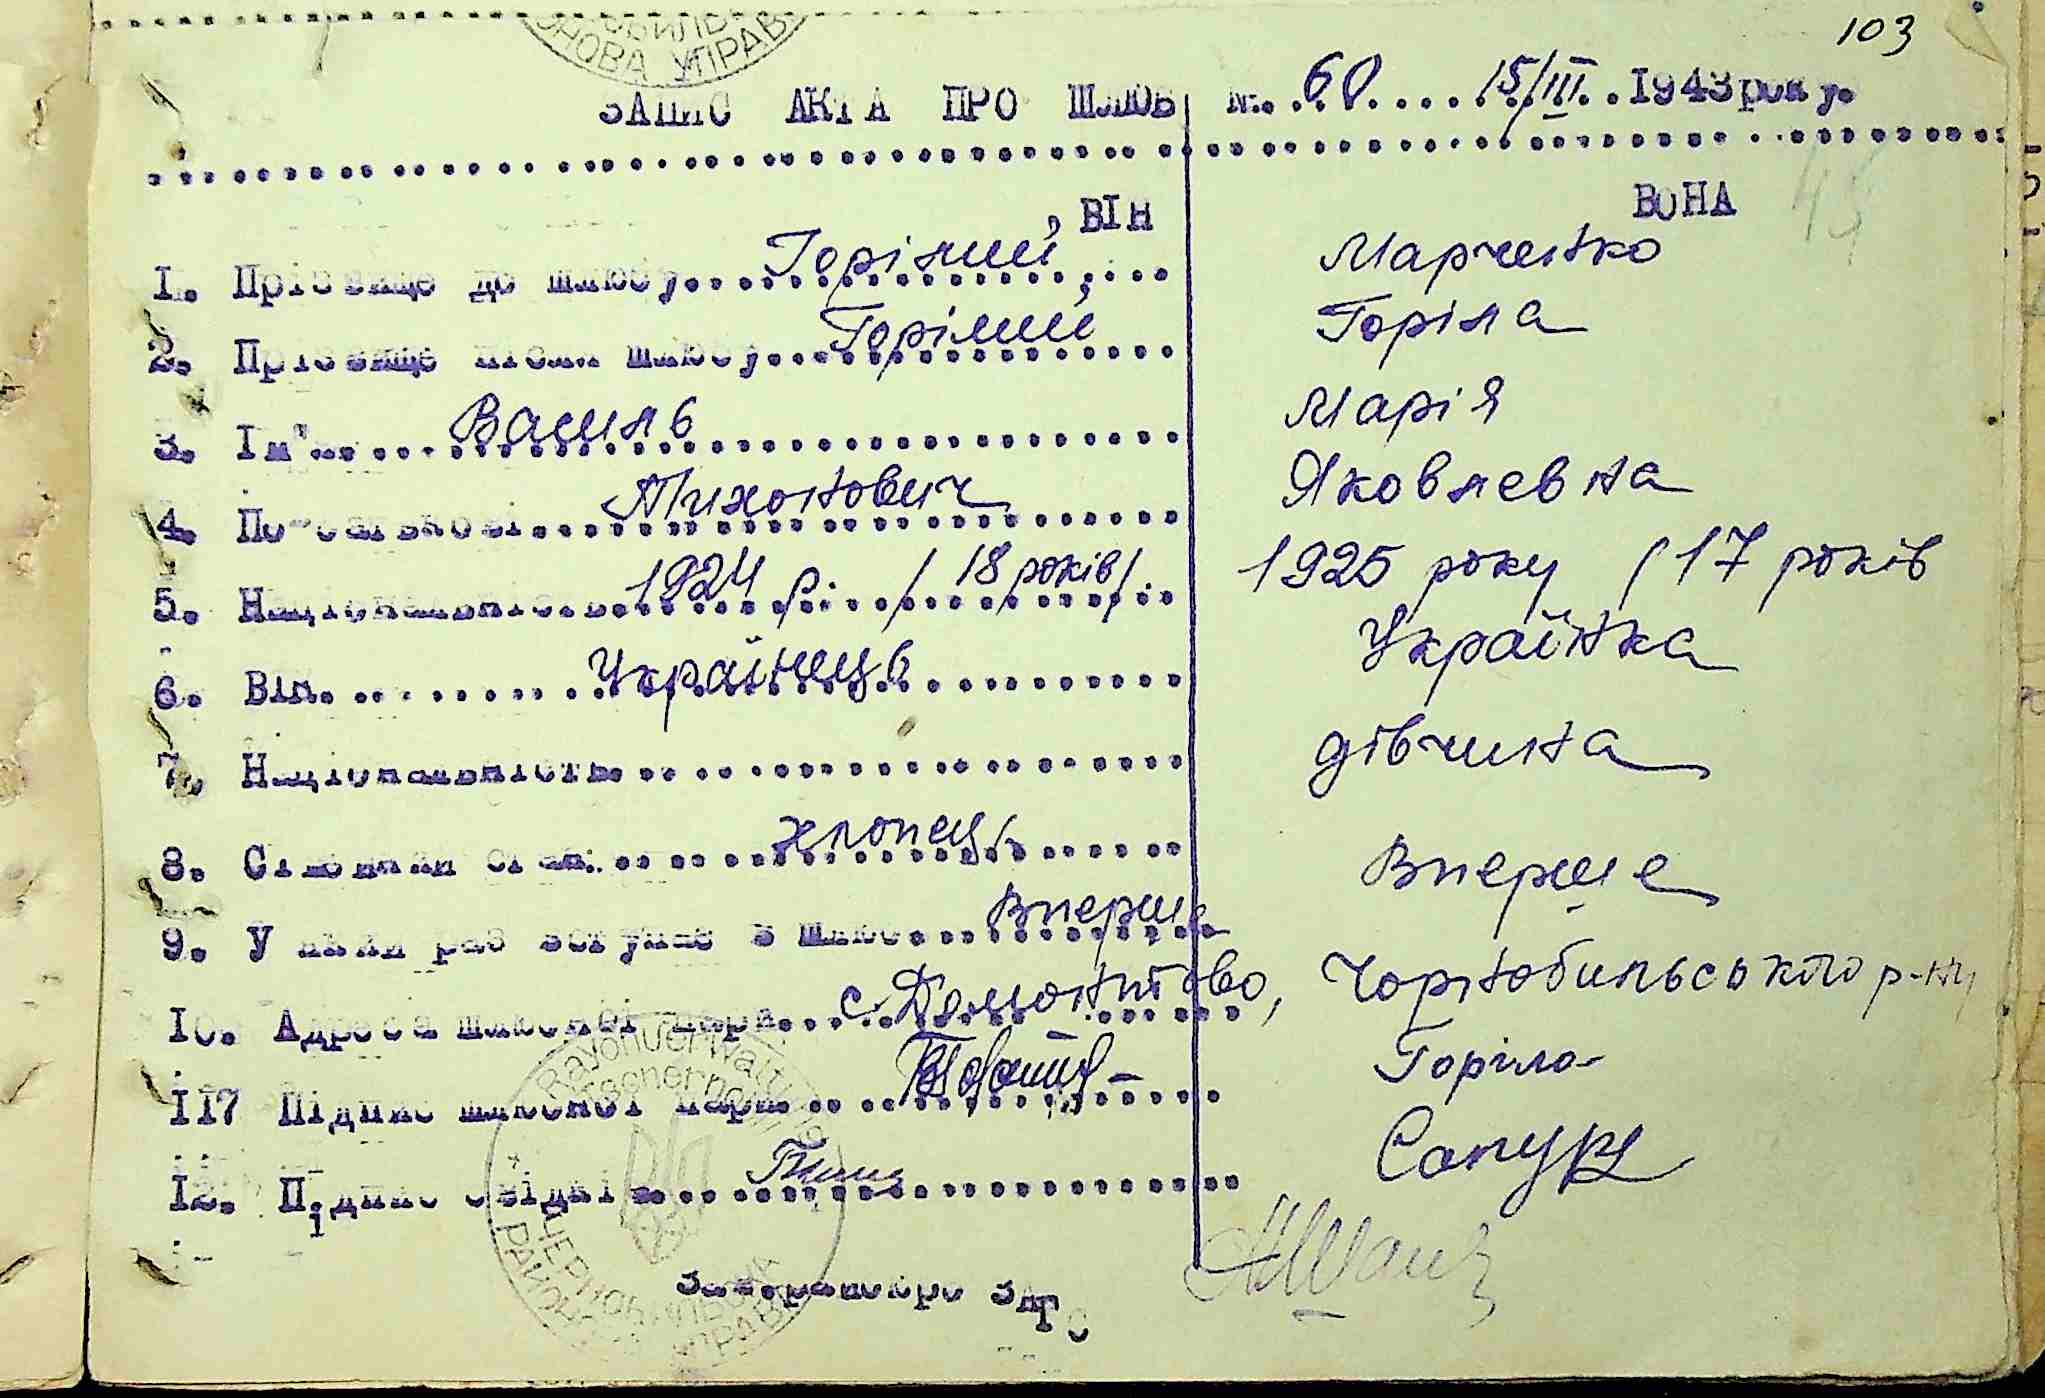 103
ЗАПИС АКТА ПРО ШЛЮБ №..60....15/III..1943 року.
ВІН ВОНА
1. Прізвище до шлюбу Горілий Марченко
2. Прізвище після шлюбу Горілий Горіла
3. Ім"я Василь Марія
4. По-батькові Тихонович Яковлевна
5. Національність 1924 р. /18 років/. 1925 року /17 років
6. Вік Українець Українка
7. Національність дівчина
8. Сімейний стан хлопець Вперше
9. У який раз вступає в шлюб Вперше
10. Адреса шлюбної пари с. Домонтово, Чорнобильського р-ну
117 Підпис шлюбної пари Горіла
12. Підпис свідків Сапура
Зав. ЗАГС
Rayonverwaltung
ЧЕРНОБИЛЬСЬКА
РАЙОНОВА УПРАВА